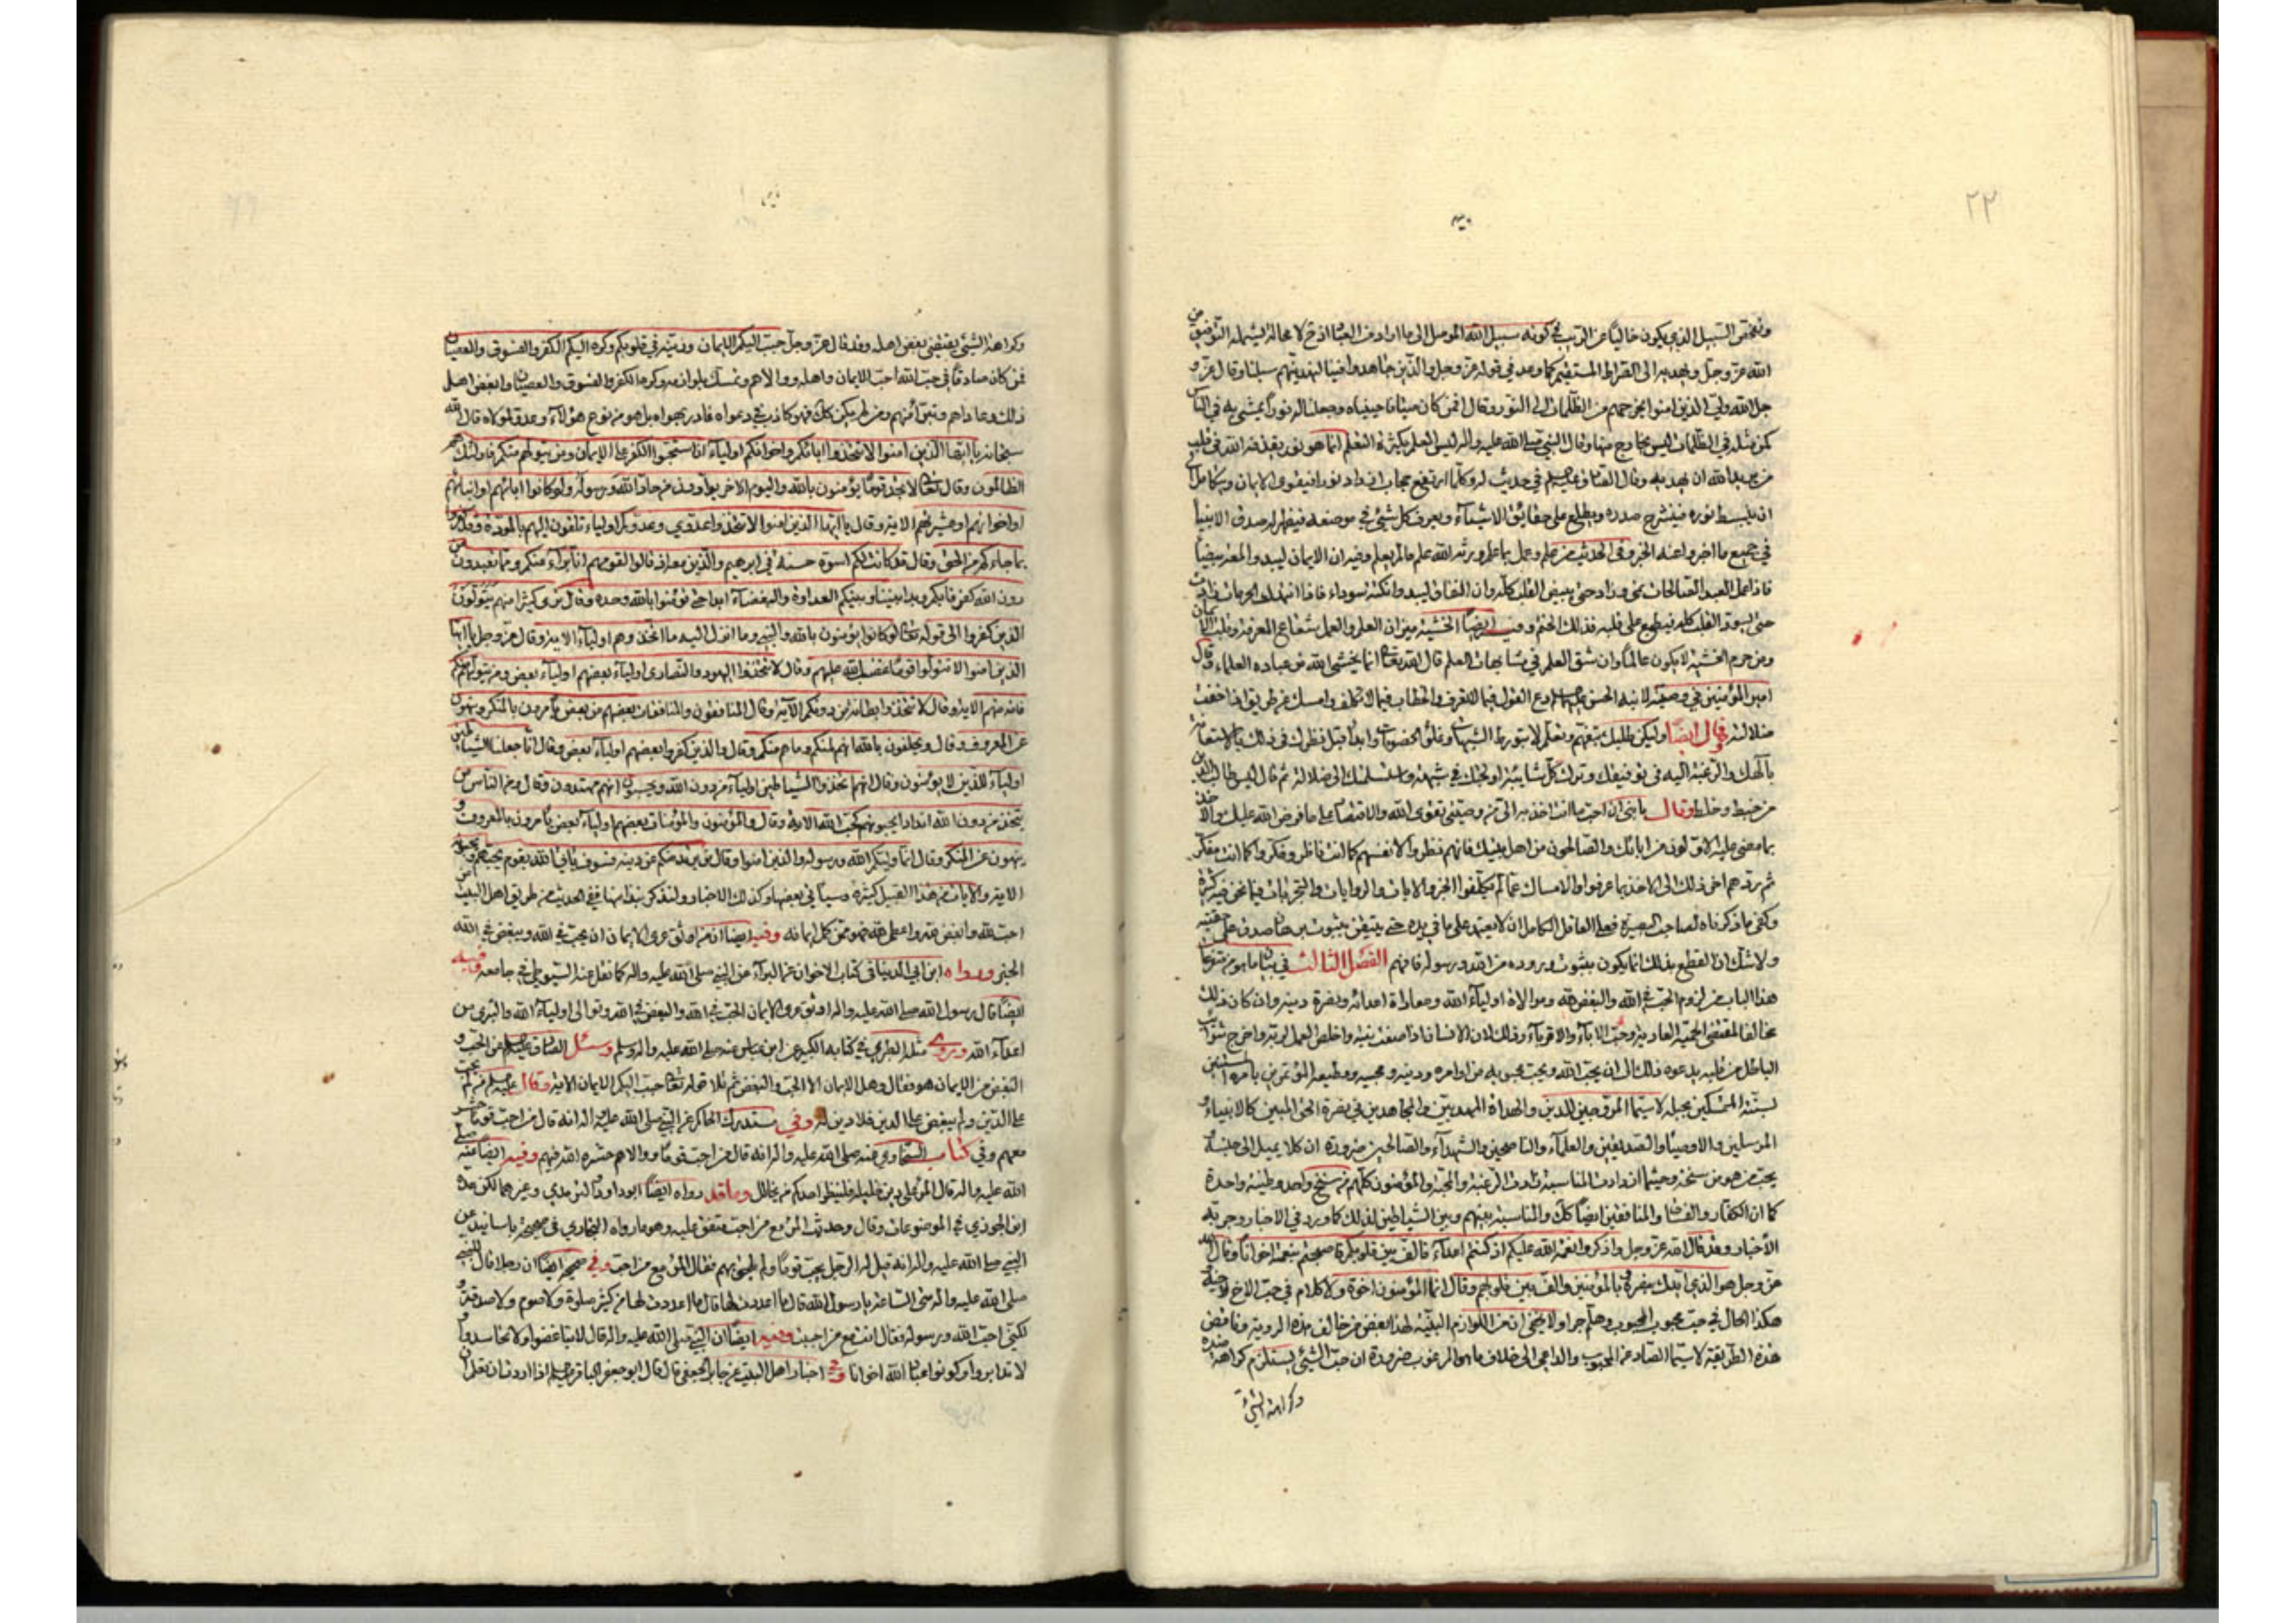 ٢٢
وتفحّص السبيل الذي يكون خالياً عن الريب في كونه سبيل الله الموصل الى ما اراد من العباد اذ ح لا محالة ليشمله التوفيق من
الله عزّ وجلّ ويهديه الى الصراط المستقيم كما وعد في قوله عزّ وجل والذين جاهدوا فينا لنهدينّهم سبلنا وقال عزّ و
جل الله وليّ الذين امنوا يخرجهم من الظلمات الى النّور وقال افمن كان ميتا فاحييناه وجعلنا له نوراً يمشي به في الناس
كمن مثله في الظلمات ليس بخارج منها وقال النبي صلى الله عليه واله ليس العلم بكثرة التعلم انما هو نور يقذفه الله في قلب
من يريد الله ان يهديه وقال الصادق في حديث له وكلما ارتفع حجاب ازداد نورا فيقوى الايمان ويتكامل الى
ان ينبسط نوره فينشرح صدره ويطلع على حقايق الاشياء ويعرف كل شيئ في موضعه فيظهر له صدق الانبيا
في جميع ما اخبروا عنه الخبر وفي الحديث من علم وعمل بما علم ورثه الله علم ما لم يعلم وفيه ان الايمان ليبدو لمعة بيضا
فاذا عمل العبد الصالحات نمى وزاد حتى يبيض القلب كله وان النفاق ليبدو نكتة سوداء فاذا انتهك الحرمات زادت
حتى يسود القلب كله فيطبع على قلبه فذلك الختم وفيه ايضاً الخشية ميزان العلم والعلم شعاع المعرفة وقلب الايمان
ومن حرم الخشية لا يكون عالماً وان شق العلم في متشابهات العلم قال الله تعالى انما يخشى الله من عباده العلماء وقال
امير المؤمنين في وصيّته لابنه الحسن ودع القول فيما لا تعرف والخطاب فيما لا تكلف وامسك عن طريق اذا خفت
ضلالته وقال ايضاً وليكن طلبك بتفهم وتعلم لا بتورط الشبهات وغلو الخصومات وابدأ قبل نظرك في ذلك بالاستعانة
بالهك والرغبة اليه في توفيقك وترك كل شايبة اولجتك في شبهة او اسلمتك الى ضلالة ثم قال ليس طالب الدين
من خبط وخلط وقال يا بنيّ ان احب ما انت اخذ به الى من وصيتي تقوى الله والاقتصار على ما فرض الله عليك والاخذ
بما مضى عليه الاوّلون من ابائك والصالحون من اهل بيتك فانهم نظروا لانفسهم كما انت ناظر وفكروا كما انت مفكر
ثم ردّهم اخر ذلك الى الاخذ بما عرفوا والامساك عما لم يكلفوا الخبر والايات والروايات والتجربيات فيما نحن فيه كثيرة
وكفى ما ذكرناه لصاحب البصيرة فعلى العاقل الكامل ان لا يعتمد على ما في يده حتى يتيقن بثبوت برهان صدق على حقيته
ولا شك ان القطع بذلك انما يكون بثبوت وروده من الله ورسوله فافهم الفصل الثالث في بيان ما هو من متفرعات
هذا الباب من لزوم الحب في الله والبغض لله وموالاة اولياء الله ومعاداة اعدائه ونصرة دينه وان كان ذلك
مخالفا لمقتضى الحمية العادية وحبّ الاباء والاقرباء وذلك لان الانسان اذا صفت نيته واخلص العمل لربه واخرج شوائب
الباطل من قلبه يدعوه ذلك الى ان يحب الله ويحب محبوبه من اوامره ودينه ومحبيه ومطيعيه المؤتمرين بامره المستنين
لسنّته المتمسكين بحبله لا سيما المروجين للدين والهداة المهديين والمجاهدين في نصرة الحق المبين كالانبياء و
المرسلين والاوصيا والصديقين والعلماء والناصحين والشهداء والصالحين ضرورة ان كلا يميل الى جنسه
يحب من هو من سنخه وحيثما ازدادت المناسبة زادت الرغبة والمحبة والمؤمنون كلهم من سنخ واحد وطينة واحدة
كما ان الكفار والفساق والمنافقين ايضاً كك والمناسبة بينهم وبين الشياطين لذلك كما ورد في الاخبار وجرى به
الأخبار وقد قال الله عزّ وجل واذكروا نعمة الله عليكم اذ كنتم اعداء فالف بين قلوبكم فاصبحتم بنعمته اخوانا وقال الله
عزّ وجل هو الذي ايدك بنصره وبالمؤمنين والف بين قلوبهم وقال انما المؤمنون اخوة ولا كلام في حب الاخ لاخيه
هكذا الحال في حبّ محبوب المحبوب وهلم جرا ولا يخفى ان من اللوازم البيّنة لهذا بغض من خالف هذه الروية وناقض
هذه الطريقة لا سيما الصاد عن المحبوب والداعي الى خلاف ما هو المرغوب ضرورة ان حبّ الشيئ يستلزم كراهة ضده
وكراهة الشيئ
وكراهة الشيئ يقتضى بغض اهله وقد قال عزّ وجل حبّب اليكم الايمان وزيّنه في قلوبكم وكرّه اليكم الكفر والفسوق والعصيان
فمن كان صادقا في حبّ الله احبّ الايمان واهله ووالاهم وتمسك بلوازمه وكره الكفر والفسوق والعصيان وابغض اهل
ذلك وعاداهم وتبرّأ منهم ومن لم يكن كك فهو كاذب في دعواه قادر بهواه بل هو من نوع هؤلاء وعدو لمولاه قال الله
سبحانه يا ايّها الذين امنوا لا تتخذوا ابائكم واخوانكم اولياء ان استحبوا الكفر على الايمان ومن يتولهم منكم فاولئك هم
الظالمون وقال تعالى لا تجد قوماً يؤمنون بالله واليوم الاخر يوادون من حاد الله ورسوله ولو كانوا ابائهم او ابنائهم
او اخوانهم او عشيرتهم الاية وقال يا ايّها الذين امنوا لا تتخذوا عدوي وعدوكم اولياء تلقون اليهم بالمودة وقد كفروا
بما جاءكم من الحق وقال قد كانت لكم اسوة حسنة في ابرهيم والذين معه اذ قالوا لقومهم انا برآء منكم ومما تعبدون من
دون الله كفرنا بكم وبدا بيننا وبينكم العداوة والبغضاء ابدا حتى تؤمنوا بالله وحده وقال ترى كثيرا منهم يتولون
الذين كفروا الى قوله تعالى ولو كانوا يؤمنون بالله والنبي وما انزل اليه ما اتخذوهم اولياء الاية وقال عزّ وجل يا ايّها
الذين امنوا لا تتولوا قوما غضب الله عليهم وقال لا تتخذوا اليهود والنصارى اولياء بعضهم اولياء بعض ومن يتولهم منكم
فانه منهم الاية وقال لا تتخذوا بطانة من دونكم الآية وقال المنافقون والمنافقات بعضهم من بعض يأمرون بالمنكر وينهون
عن المعروف وقال ويحلفون بالله انهم لمنكم وما هم منكم وقال والذين كفروا بعضهم اولياء بعض وقال انا جعلنا الشياطين
اولياء للذين لا يؤمنون وقال انهم اتخذوا الشياطين اولياء من دون الله ويحسبون انهم مهتدون وقال ومن الناس من
يتخذ من دون الله اندادا يحبونهم كحب الله الاية وقال والمؤمنون والمؤمنات بعضهم اولياء بعض يأمرون بالمعروف و
ينهون عن المنكر وقال انما وليكم الله ورسوله والذين امنوا وقال من يرتد منكم عن دينه فسوف يأتي الله بقوم يحبهم ويحبونه
الاية والايات من هذا القبيل كثيرة وسيأتي بعضها وكذلك الاخبار ولنذكر نبذا منها ففي الحديث من طريق اهل البيت من
احب لله وابغض لله واعطى لله فهو ممن كمل ايمانه وفيه ايضا ان من اوثق عرى الايمان ان يحبّ في الله ويبغض في الله
الخبر ورواه ابن ابي الدنيا في كتاب الاخوان عن البراء عن النبي صلى الله عليه واله كما نقل عنه السيوطي في جامعه وفيه
ايضا قال رسول الله صلى الله عليه واله اوثق عرى الايمان الحب في الله والبغض في الله وتوالى اولياء الله والتبرى من
اعداء الله وروى مثله الطبري في كتابه الكبير عن ابن عباس عنه صلى الله عليه واله وسلم وسئل الصادق عن الحب و
البغض من الايمان هو فقال وهل الايمان الا الحبّ والبغض ثم تلا قوله تعالى حبب اليكم الايمان الاية وقال من لم يحب
على الدّين ولم يبغض على الدين فلا دين له وفي مستدرك الحاكم عن النبي صلى الله عليه واله انه قال من احب قوما حشر
معهم وفي كتاب السخاوي عنه صلى الله عليه واله انه قال من احب قوما ووالاهم حشره الله فيهم وفيه ايضاً عنه صلى
الله عليه واله قال المرء على دين خليله فلينظر احدكم من يخالل وما قد رواه ايضاً ابو داود والترمدي وغيرهما لكن عده
ابن الجوزي في الموضوعات وقال وحديث المرء مع من احب متفق عليه وهو ما رواه البخاري في صحيحه باسانيد عن
النبي صلى الله عليه واله انه قيل له الرجل يحب قوما ولم يلحق بهم فقال المرء مع من احبّ وفي صحيحه ايضاً ان رجلا قال للنبي
صلى الله عليه واله متى الساعة يا رسول الله قال ما اعددت لها قال ما اعددت لها من كثير صلوة ولا صوم ولا صدقة و
لكني احب الله ورسوله فقال انت مع من احببت وفيه ايضاً ان النبي صلى الله عليه واله قال لا تباغضوا ولا تحاسدوا و
لا تدابروا وكونوا عباد الله اخوانا وفي اخبار اهل البيت عن جابر الجعفي قال قال ابو جعفر الباقر اذا اردت ان تعلم ان